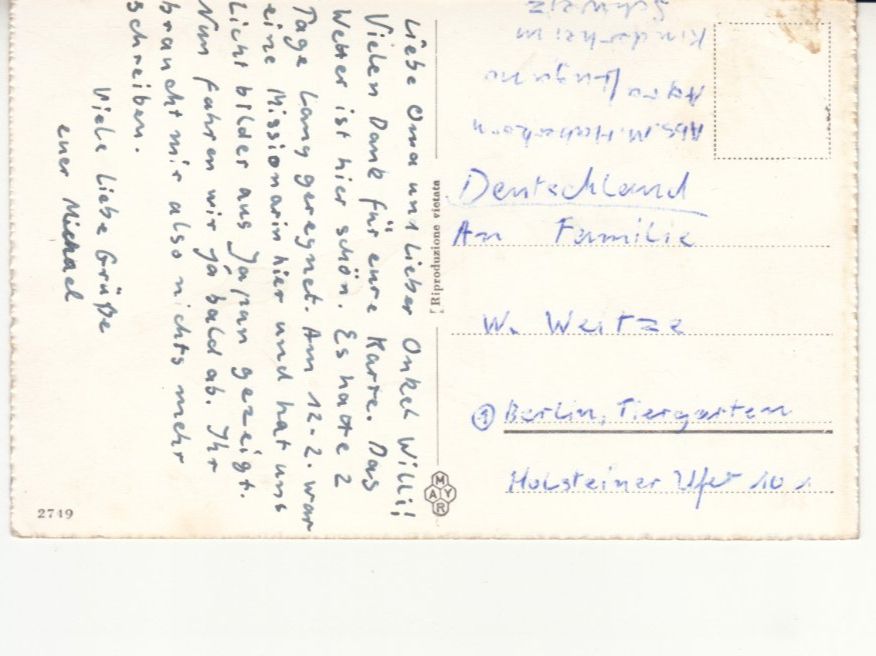 Liebe Oma und Lieber Onkel Willi!
Vielen Dank für eure Karte. Das
Wetter ist hier schön. Es hatte 2
Tage lang geregnet. Am 12.2. war
eine Missionarin hier und hat uns
Lichtbilder aus Japan gezeigt.
Nun fahren wir ja bald ab. Ihr
braucht mir also nichts mehr
schreiben.
Viele Liebe Grüße
euer Michael
2749
Riproduzione vietata
MAYR
Abs. M.
Agra / Lugano
Kinderheim
Schweiz
Deutschland
An Familie
W. Weitze
① Berlin, Tiergarten
Holsteiner Ufer 10